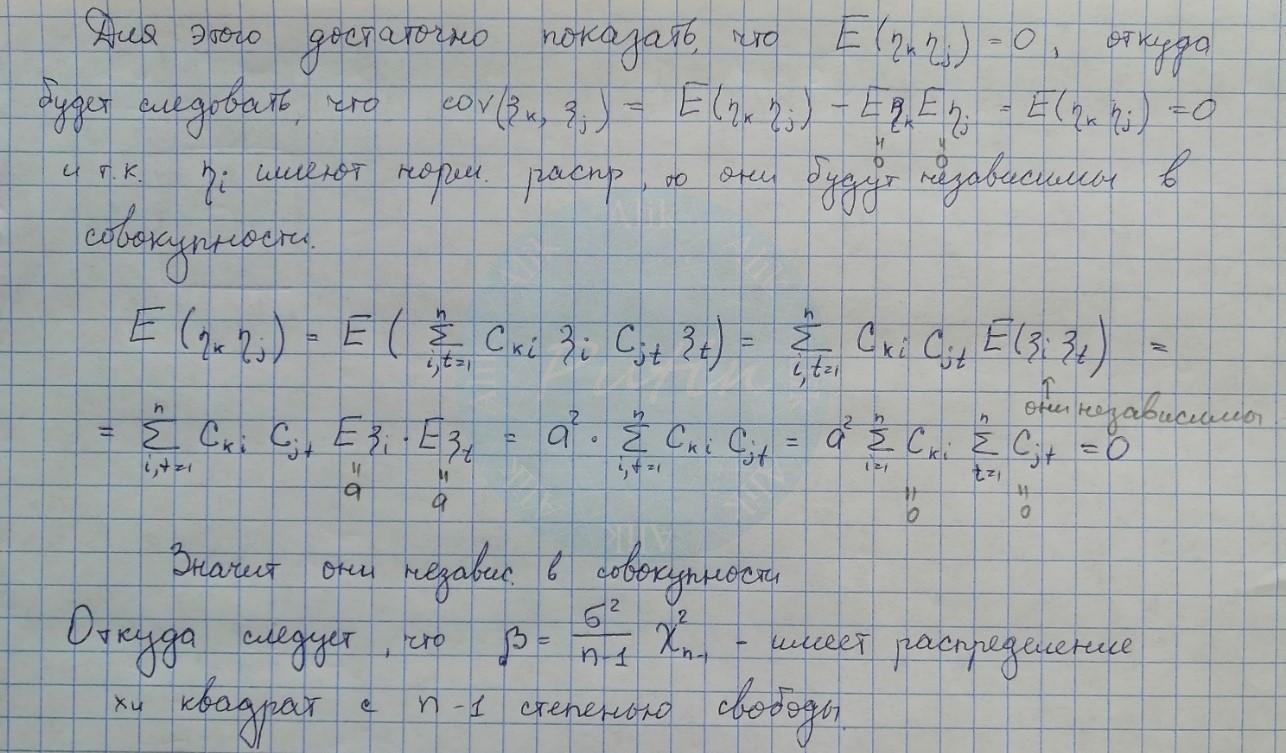 Для этого достаточно показать, что E(η_k η_j) = 0, откуда
будет следовать, что cov(ξ_k, ξ_j) = E(η_k η_j) - Eη_k Eη_j = E(η_k η_j) = 0
" "
0 0
и т.к. η_i имеют норм. распр, то они будут независимы в
совокупности.
E(η_k η_j) = E( Σ_{i,t=1}^{n} C_{ki} ξ_i C_{jt} ξ_t) = Σ_{i,t=1}^{n} C_{ki} C_{jt} E(ξ_i ξ_t) =
↑
они независимы
= Σ_{i,t=1}^{n} C_{ki} C_{jt} Eξ_i · Eξ_t = a² · Σ_{i,t=1}^{n} C_{ki} C_{jt} = a² Σ_{i=1}^{n} C_{ki} Σ_{t=1}^{n} C_{jt} = 0
" " " "
a a 0 0
Значит они независ. в совокупности
Откуда следует, что β = σ²/(n-1) χ²_{n-1} - имеет распределение
хи квадрат с n-1 степенью свободы.